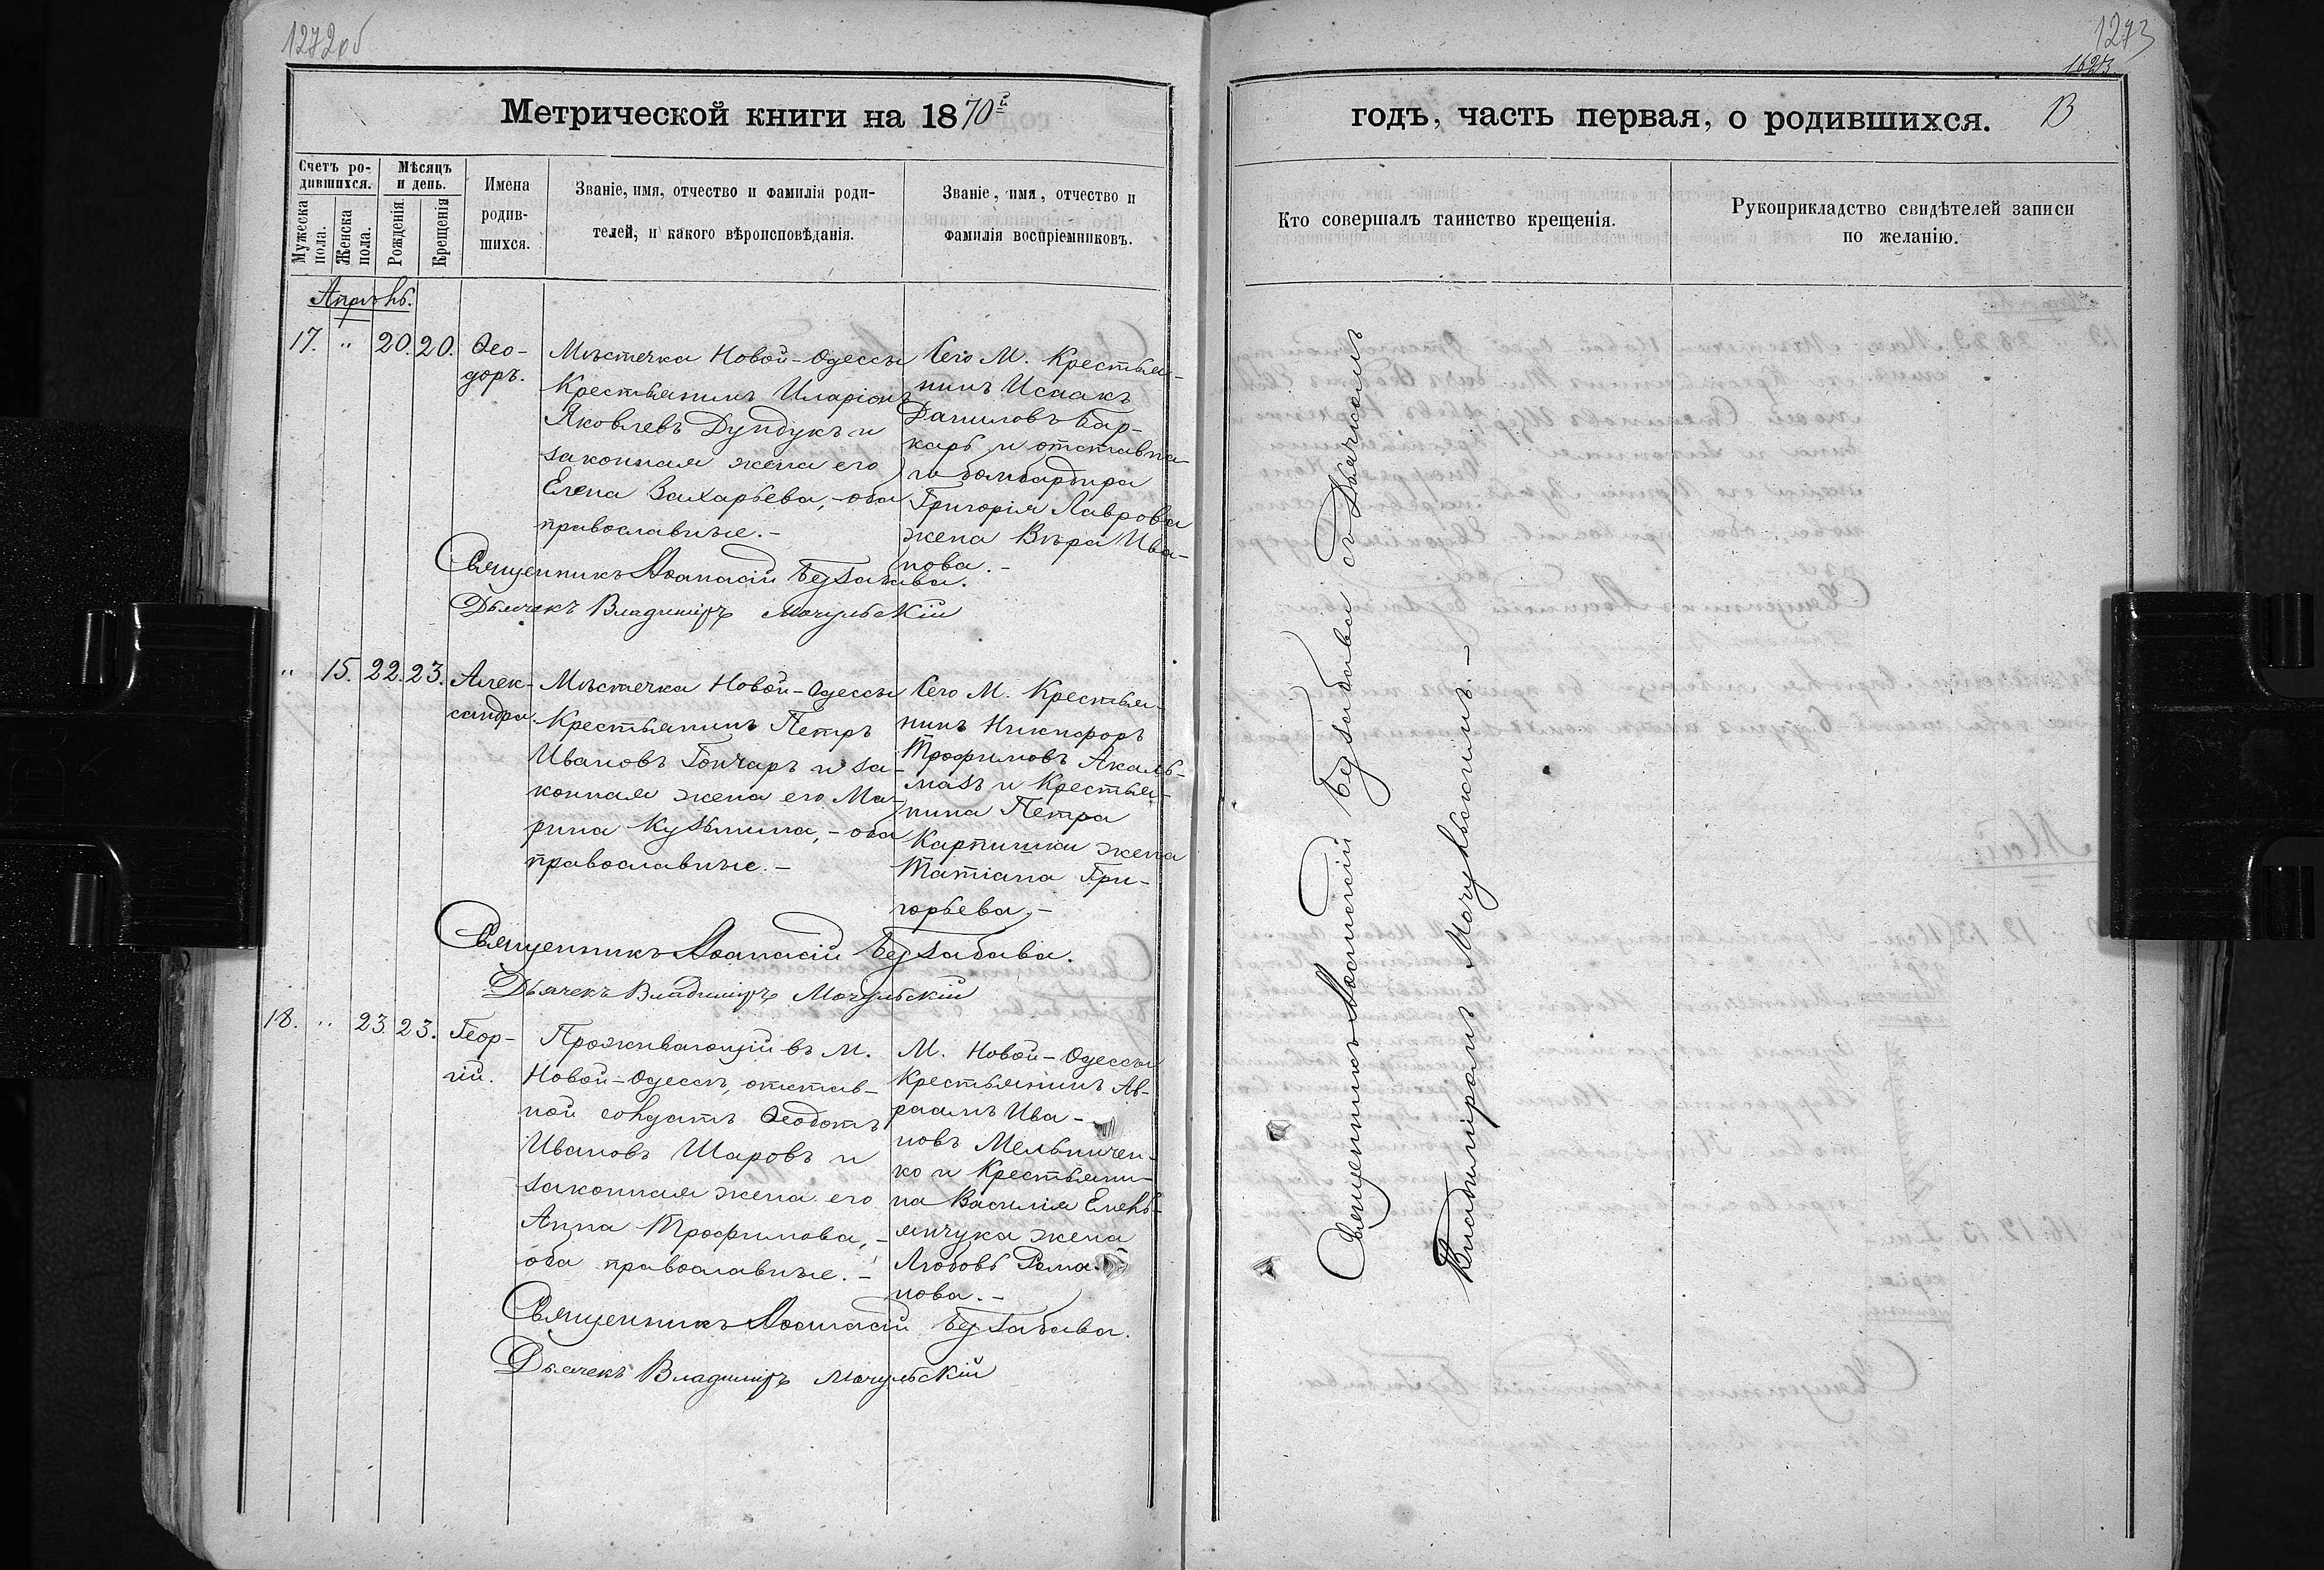 1272об
Метрической книги на 1870й
Счетъ ро-
дившихся.
Мужеска
пола.
Женска
пола.
Мѣсяцъ
и день.
Рожденія.
Крещенія
Имена
родив-
шихся.
Званіе, имя, отчество и фамилія роди-
телей, и какого вѣроисповѣданія.
Званіе, имя, отчество и
фамилія воспріемниковъ.
Апрѣль.
17. " 20. 20.
Ѳео-
доръ.
Мѣстечка Новой-Одессы
Крестьянинъ Иларіонъ
Яковлевъ Дундукъ и
законная жена его
Елена Захарьева, - оба
православные. -
Сего М. Крестья-
нинъ Исаакъ
Даниловъ Бар-
карь и отставна-
го бомбардира
Григорія Лаврова
жена Вѣра Ива-
нова. -
Священникъ Аѳанасій Безабава.
Дьячекъ Владиміръ Мочульскій
" 15. 22. 23.
Алек-
сандра.
Мѣстечка Новой-Одессы
Крестьянинъ Петръ
Ивановъ Гончаръ и за-
конная жена его Ма-
рина Кузьмина, - оба
православные. -
Сего М. Крестья-
нинъ Никифоръ
Трофимовъ Акаль-
мазъ и Крестья-
нина Петра
Карпишки жена
Татіана Гри-
горьева. -
Священникъ Аѳанасій Безабава.
Дьячекъ Владиміръ Мочульскій
18. " 23. 23.
Геор-
гій.
Проживающій въ М.
Новой-Одессѣ, отстав-
ной солдатъ Ѳеодотъ
Ивановъ Шаровъ и
законная жена его
Анна Трофимова, -
оба православные. -
М. Новой-Одессы
Крестьянинъ Ав-
раамъ Ива-
новъ Мельничен-
ко и Крестьяни-
на Василія Емель-
янчука жена
Любовь Рома-
нова. -
Священникъ Аѳанасій Безабава.
Дьячекъ Владиміръ Мочульскій
1273
годъ, часть первая, о родившихся.
13
Кто совершалъ таинство крещенія.
Рукоприкладство свидѣтелей записи
по желанію.
Священникъ Аѳанасій Безабава съ Дьячкомъ
Владиміромъ Мочульскимъ. -
Май